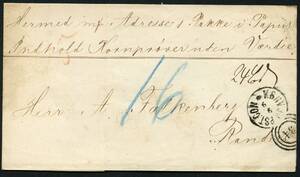 Hermed mf Adresse 1 Pakke i Papir
Indhold Kornprøver uden Værdie
16
Herr A. Falkenberg
Rand